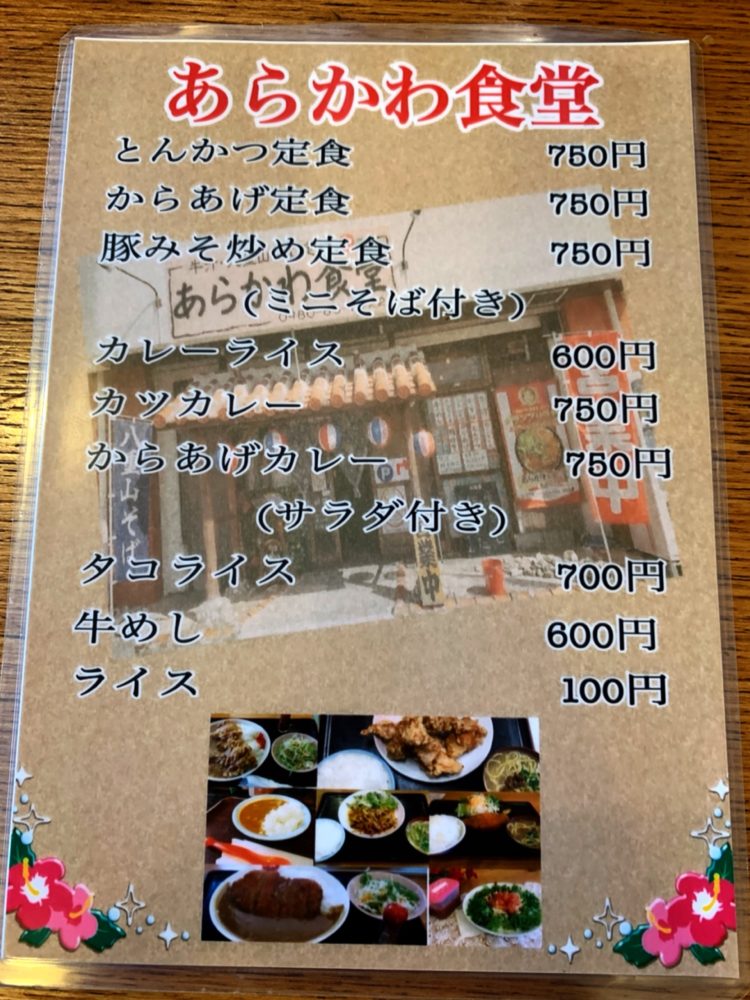 あらかわ食堂
とんかつ定食 750円
からあげ定食 750円
豚みそ炒め定食 750円
あらかわ食堂
(ミニそば付き)
カレーライス 600円
カツカレー 750円
からあげカレー 750円
八重山そば
(サラダ付き)
タコライス 700円
牛めし 600円
ライス 100円